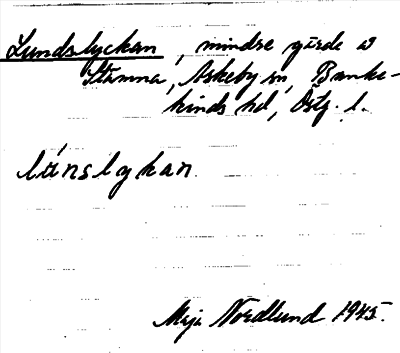 Lundslyckan, mindre gärde å
Stämna, Askeby sn, Banke-
kinds hd, Östg. l.
lúnslykan.
Maja Nordlund 1945.